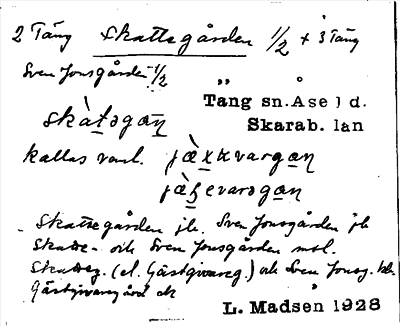 2 Täng Skattegården 1/2 + 3 Täng
Sven Jonsgården 1/2
Täng sn. Åse hd.
skàtəgaṉ
Skarab. län
kallas vanl. jæ̀xkvargaṉ
jæ̀ʂevarəgaṉ
Skattegården jb. Sven Jonsgården jb
Skatte- och Sven Jonsgården
Skatteg. (el. Gästgivareg.) och Sven Jonsg.
Gästgivaregård
L. Madsén 1928